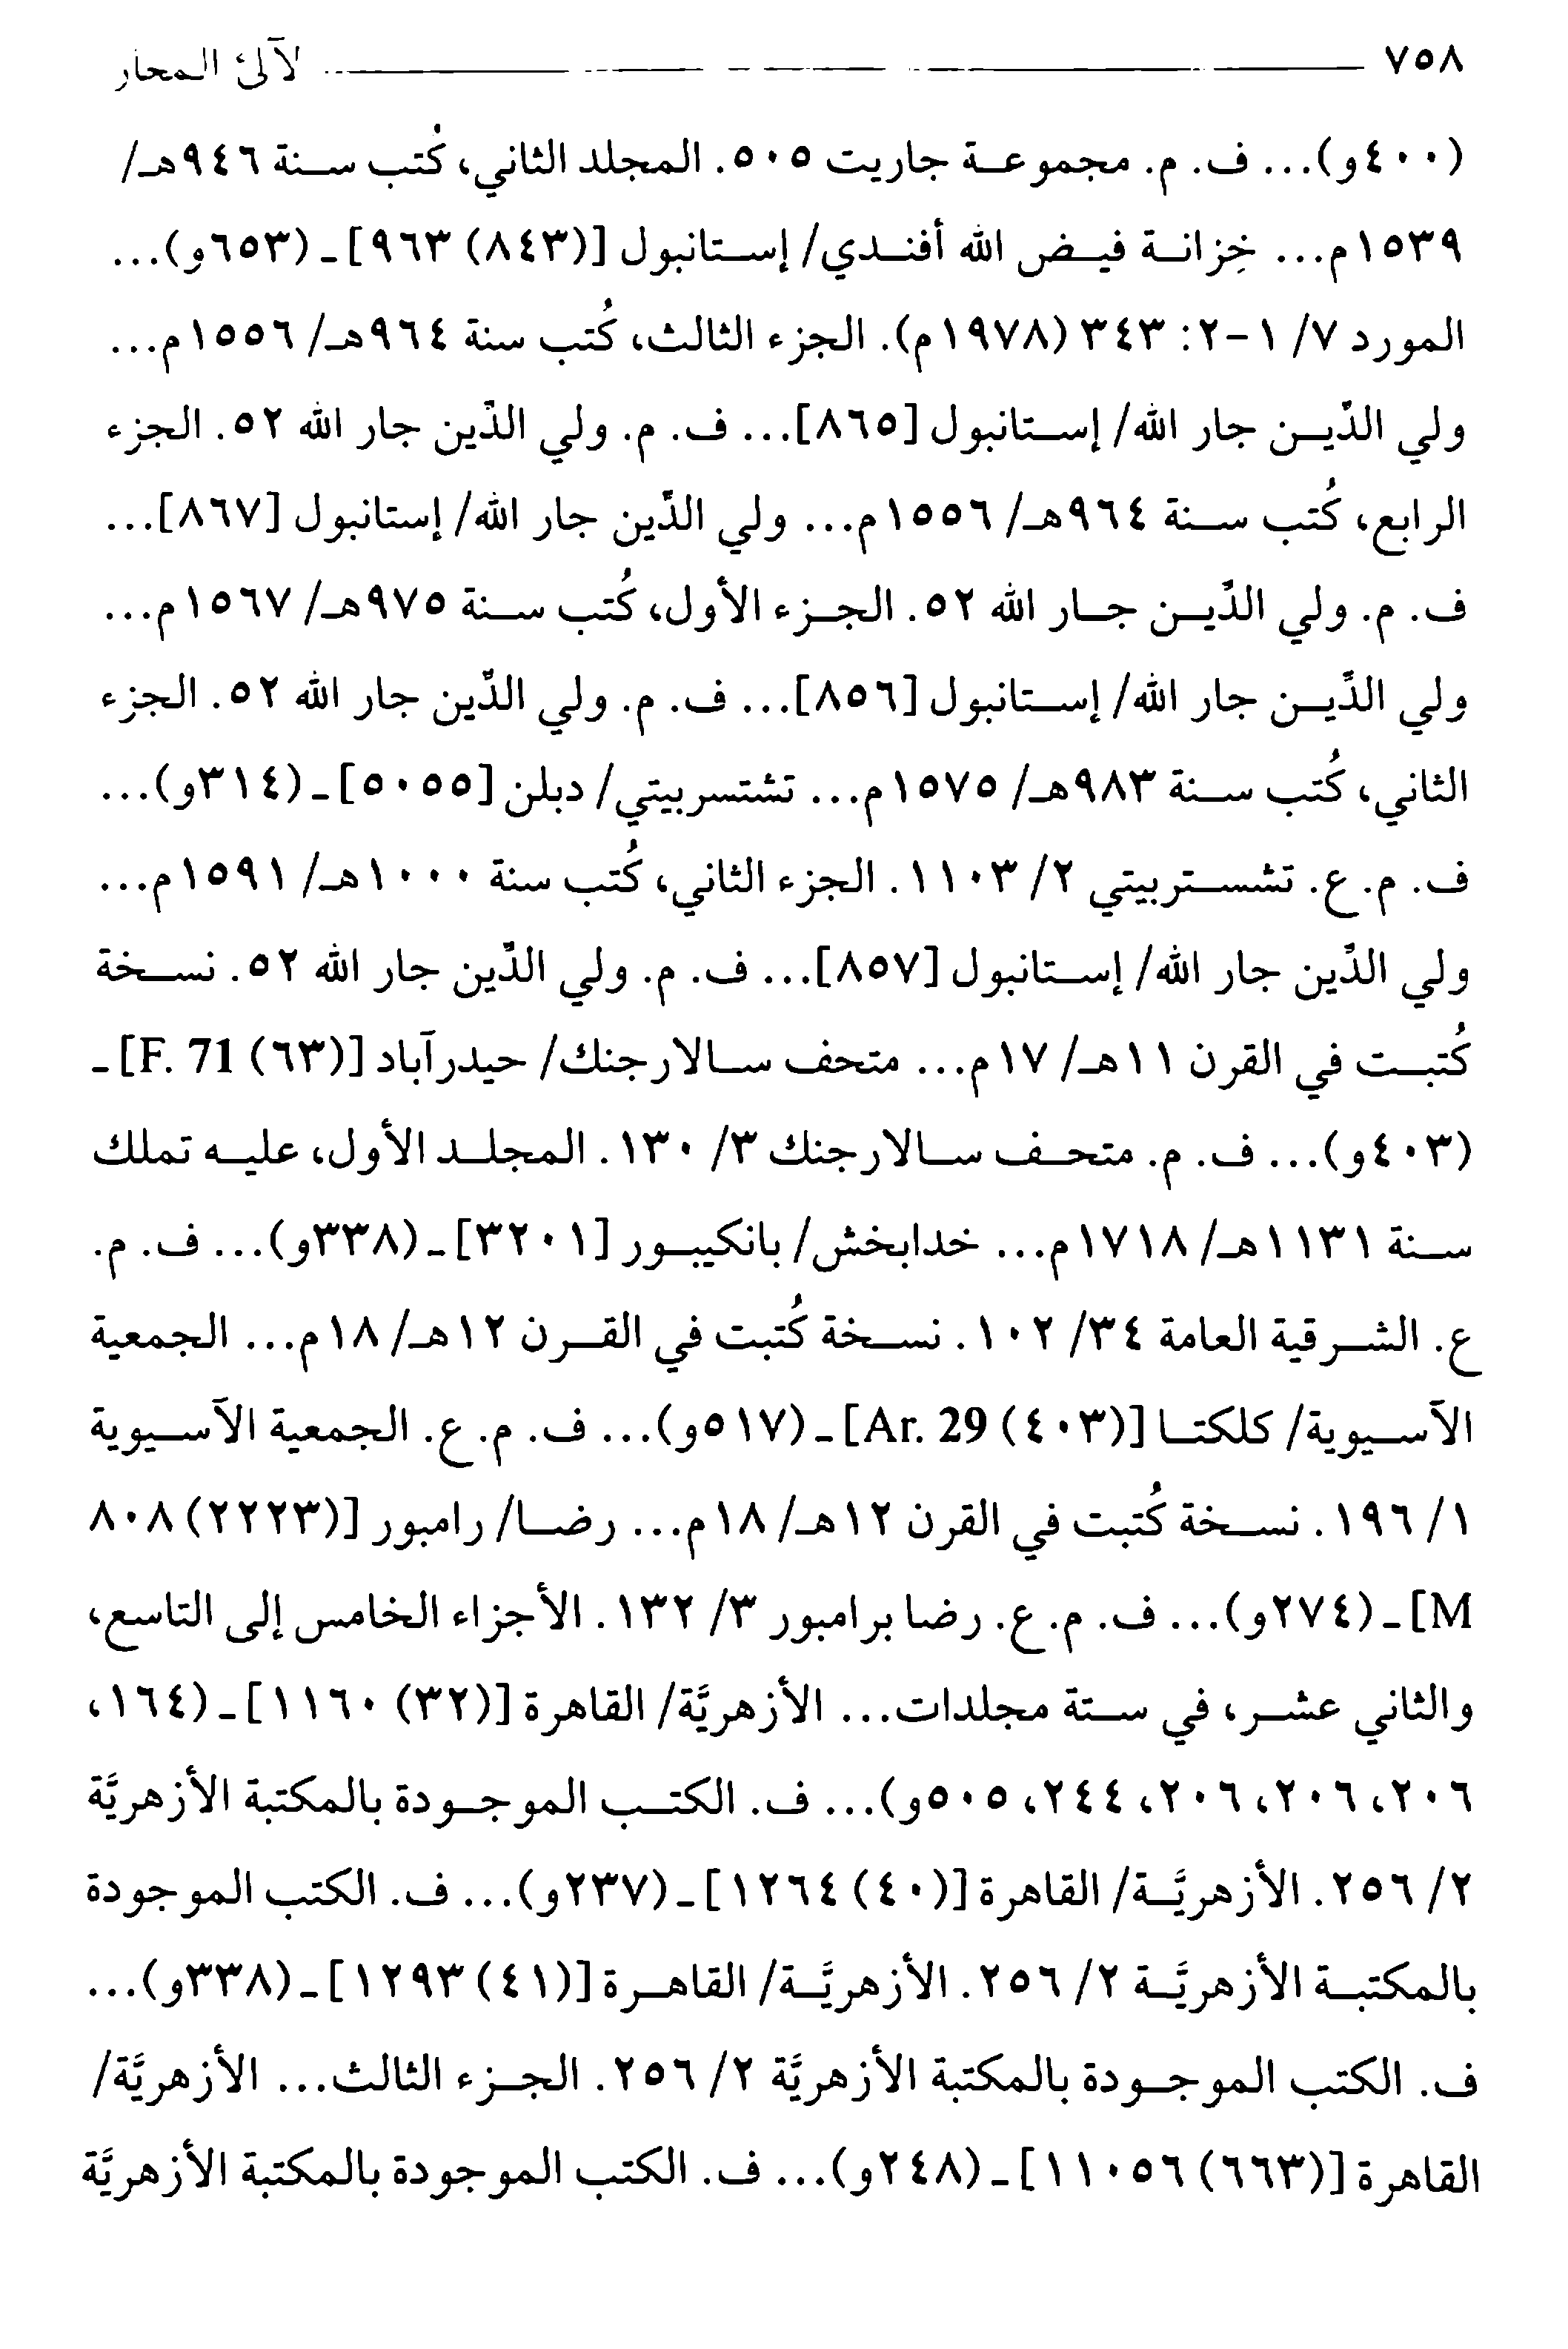 ٧٥٨ لآلئ المحار
(٤٠٠و)... ف. م. مجموعة جاريت ٥٠٥. المجلد الثاني، كُتب سنة ٩٤٦هـ/
١٥٣٩م... خِزانة فيض الله أفندي/ إستانبول [(٨٤٣) ٩٦٣] ـ (٦٥٣و)...
المورد ٧/ ١-٢: ٣٤٣ (١٩٧٨م). الجزء الثالث، كُتب سنة ٩٦٤هـ/ ١٥٥٦م...
ولي الدِّين جار الله/ إستانبول [٨٦٥]... ف. م. ولي الدِّين جار الله ٥٢. الجزء
الرابع، كُتب سنة ٩٦٤هـ/ ١٥٥٦م... ولي الدِّين جار الله/ إستانبول [٨٦٧]...
ف. م. ولي الدِّين جار الله ٥٢. الجزء الأول، كُتب سنة ٩٧٥هـ/ ١٥٦٧م...
ولي الدِّين جار الله/ إستانبول [٨٥٦]... ف. م. ولي الدِّين جار الله ٥٢. الجزء
الثاني، كُتب سنة ٩٨٣هـ/ ١٥٧٥م... تشتسربيتي/ دبلن [٥٠٥٥] ـ (٣١٤و)...
ف. م. ع. تشستربيتي ٢/ ١١٠٣. الجزء الثاني، كُتب سنة ١٠٠٠هـ/ ١٥٩١م...
ولي الدِّين جار الله/ إستانبول [٨٥٧]... ف. م. ولي الدِّين جار الله ٥٢. نسخة
كُتبت في القرن ١١هـ/ ١٧م... متحف سالارجنك/ حيدرآباد [(٦٣) F. 71] ـ
(٤٠٣و)... ف. م. متحف سالارجنك ٣/ ١٣٠. المجلد الأول، عليه تملك
سنة ١١٣١هـ/ ١٧١٨م... خدابخش/ بانكيبور [٣٢٠١] ـ (٣٣٨و)... ف. م.
ع. الشرقية العامة ٣٤/ ١٠٢. نسخة كُتبت في القرن ١٢هـ/ ١٨م... الجمعية
الآسيوية/ كلكتا [(٤٠٣) Ar. 29] ـ (٥١٧و)... ف. م. ع. الجمعية الآسيوية
١/ ١٩٦. نسخة كُتبت في القرن ١٢هـ/ ١٨م... رضا/ رامبور [(٢٢٢٣) ٨٠٨
M] ـ (٢٧٤و)... ف. م. ع. رضا برامبور ٣/ ١٣٢. الأجزاء الخامس إلى التاسع،
والثاني عشر، في ستة مجلدات... الأزهريَّة/ القاهرة [(٣٢) ١١٦٠] ـ (١٦٤،
٢٠٦، ٢٠٦، ٢٠٦، ٢٤٤، ٥٠٥و)... ف. الكتب الموجودة بالمكتبة الأزهريَّة
٢/ ٢٥٦. الأزهريَّة/ القاهرة [(٤٠) ١٢٦٤] ـ (٢٣٧و)... ف. الكتب الموجودة
بالمكتبة الأزهريَّة ٢/ ٢٥٦. الأزهريَّة/ القاهرة [(٤١) ١٢٩٣] ـ (٣٣٨و)...
ف. الكتب الموجودة بالمكتبة الأزهريَّة ٢/ ٢٥٦. الجزء الثالث... الأزهريَّة/
القاهرة [(٦٦٣) ١١٠٥٦] ـ (٢٤٨و)... ف. الكتب الموجودة بالمكتبة الأزهريَّة